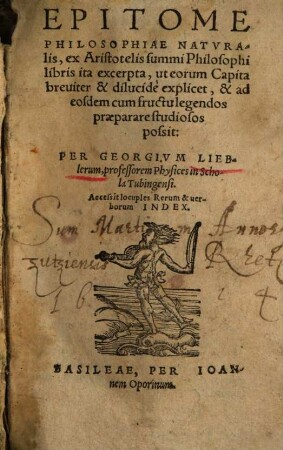 EPITOME
PHILOSOPHIAE NATVRA-
lis, ex Aristotelis summi Philosophi
libris ita excerpta, ut eorum Capita
breuiter & dilucidè explicet, & ad
eosdem cum fructu legendos
præparare studiosos
possit:
PER GEORGIVM LIEB-
lerum, professorem Physices in Scho-
la Tubingensi.
Accessit locuples Rerum & uer-
borum INDEX.
Sum Martini
Rhet
16 24
BASILEAE, PER IOAN-
nem Oporinum.